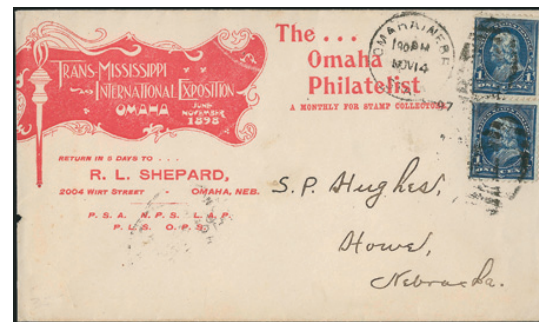 TRANS-MISSISSIPPI
INTERNATIONAL EXPOSITION
OMAHA JUNE NOVEMBER 1898
The ...
Omaha
Philatelist
A MONTHLY FOR STAMP COLLECTORS
OMAHA, NEBR.
NOV 14
97
1 1
ONE CENT
1
ONE CENT
RETURN IN 5 DAYS TO ....
R. L. SHEPARD,
2004 WIRT STREET - OMAHA, NEB.
P. S. A. N. P. S. L. A. P.
P. L. S. O. P. S.
S. P. Hughes,
Howe,
Nebraska.